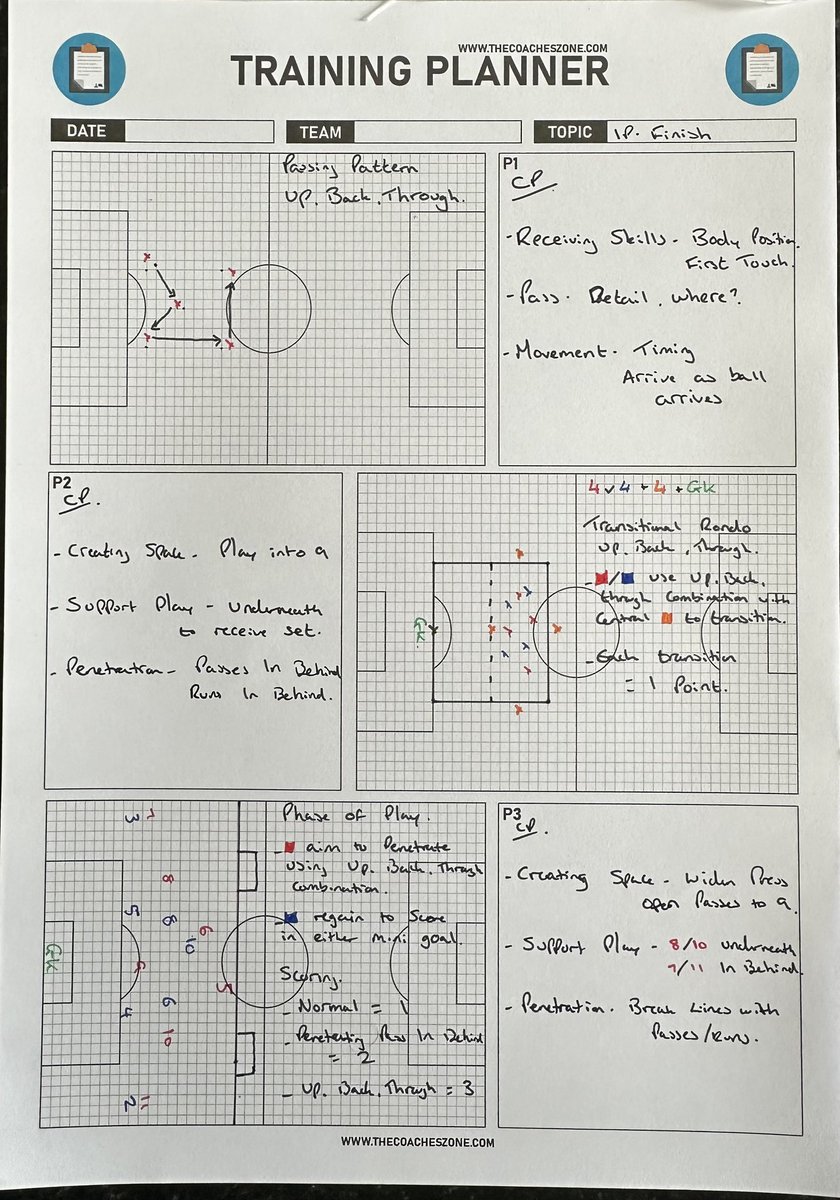 WWW.THECOACHESZONE.COM
TRAINING PLANNER
DATE
TEAM
TOPIC
IP. Finish
Passing Pattern
UP. Back. Through.
P1
CP
- Receiving Skills - Body Position.
First Touch.
- Pass. Detail. where?
- Movement. Timing
Arrive as ball
arrives
P2
CP.
- Creating Space - Play into 9
- Support Play - underneath
to receive set.
- Penetration - Passes In Behind
Runs In Behind.
4 v 4 + 4 + GK
Transitional Rondo
UP. Back. Through.
- / use UP. Back.
through combination with
Central to transition.
- Each transition
= 1 Point.
GK.
Phase of Play.
- aim to Penetrate
using UP. Back. Through
Combination.
- regain to Score
in either mini goal.
Scoring.
- Normal = 1
- Penetrating Pass In Behind
= 2
- UP. Back. Through = 3
3 7
8
5 8 6
10
GK
9 5
4 6
10
2 11
P3
CP.
- Creating Space - Widen Press
open Passes to 9.
- Support Play - 8/10 underneath
7/11 In Behind.
- Penetration. Break Lines with
Passes/Runs.
WWW.THECOACHESZONE.COM